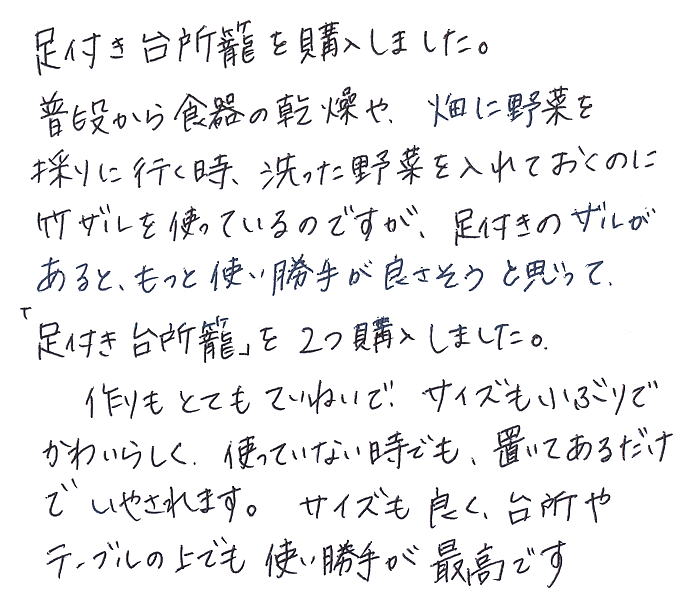 足付き台所籠を購入しました。
普段から食器の乾燥や、畑に野菜を
採りに行く時、洗った野菜を入れておくのに
竹ザルを使っているのですが、足付きのザルが
あると、もっと使い勝手が良さそうと思って、
「足付き台所籠」を2つ購入しました。
作りもとてもていねいで、サイズもいいぶりで
かわいらしく、使っていない時でも、置いてあるだけ
でいやされます。サイズも良く、台所や
テーブルの上でも使い勝手が最高です